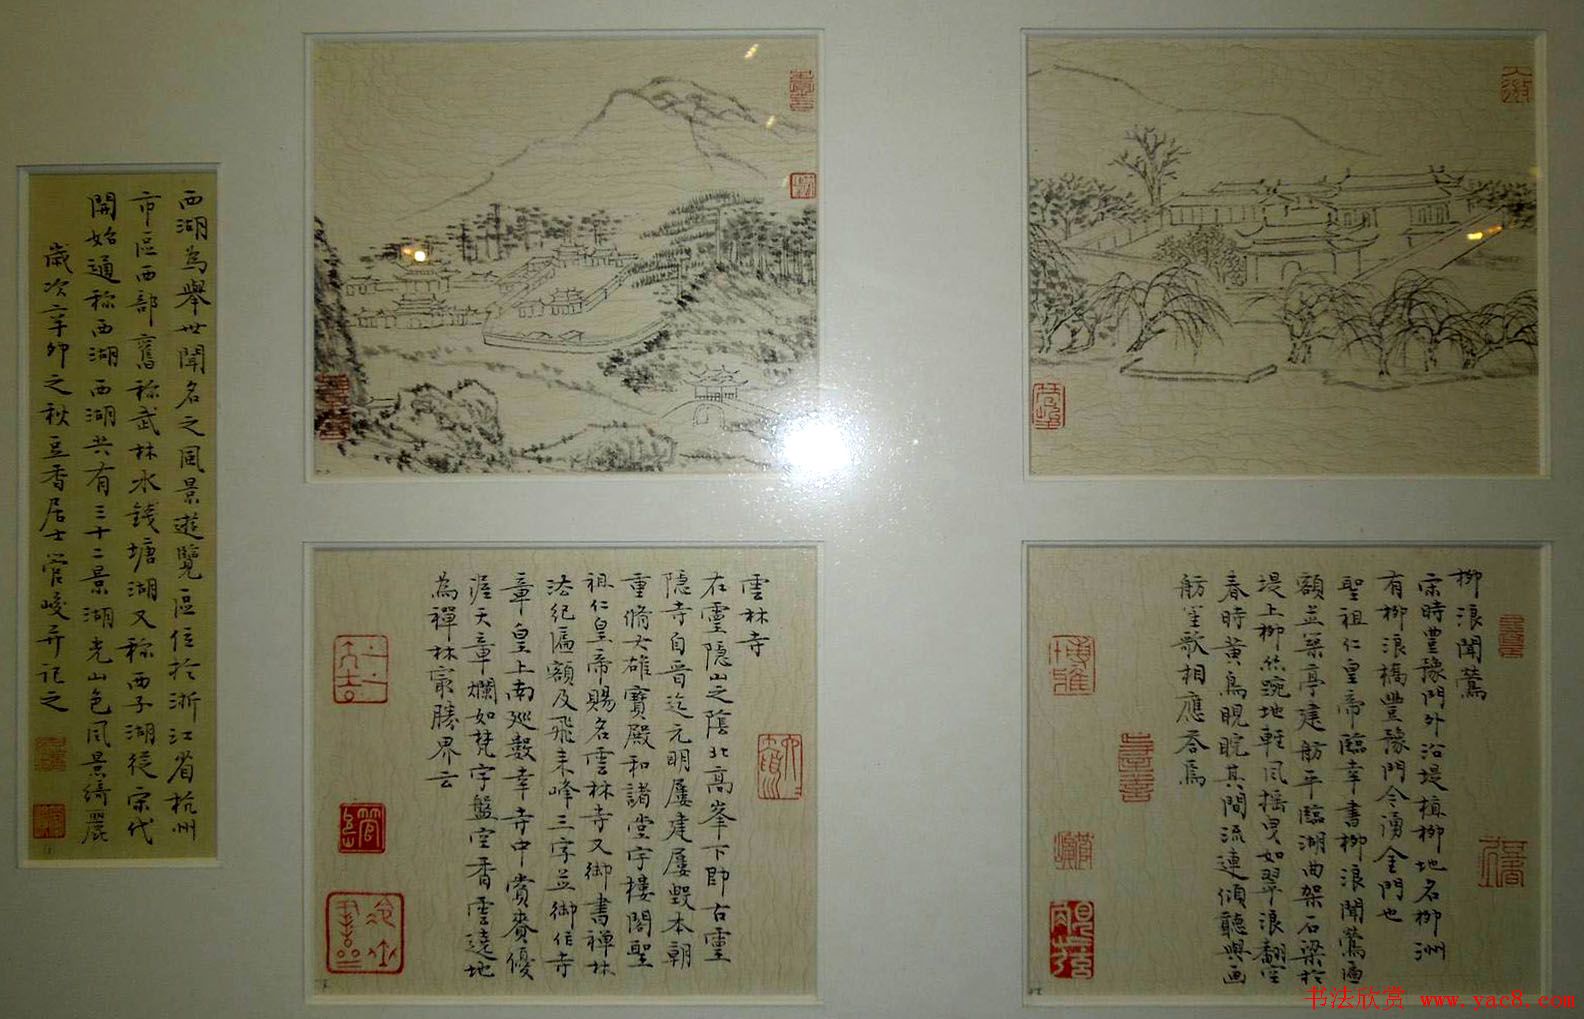 西湖為舉世聞名之風景遊覽區位於浙江省杭州
市區西部舊稱武林水錢塘湖又稱西子湖從宋代
開始通稱西湖西湖共有三十二景湖光山色風景綺麗
歲次辛卯之秋豆香居士管峻并記之
雲林寺
在靈隱山之陰北高峯下即古靈
隱寺自晉迄元明屢建屢毀本朝
重脩大雄寶殿和諸堂宇樓閣聖
祖仁皇帝賜名雲林寺又御書禪林
法紀匾額及飛来峰三字並御作寺
章皇上南廵數幸寺中賞賚優
渥天章爛如梵字盤空香雲遶地
為禪林最勝界云
柳浪聞鶯
宋時豐豫門外沿堤植柳地名柳洲
有柳浪橋豐豫門今湧金門也
聖祖仁皇帝臨幸書柳浪聞鶯匾
額並築亭建舫平臨湖曲架石梁於
堤上柳絲踠地軽風摇曳如翠浪翻空
春時黄鳥睍睆其間流連傾聽與画
舫笙歌相應答焉
书法欣赏 www.yac8.com